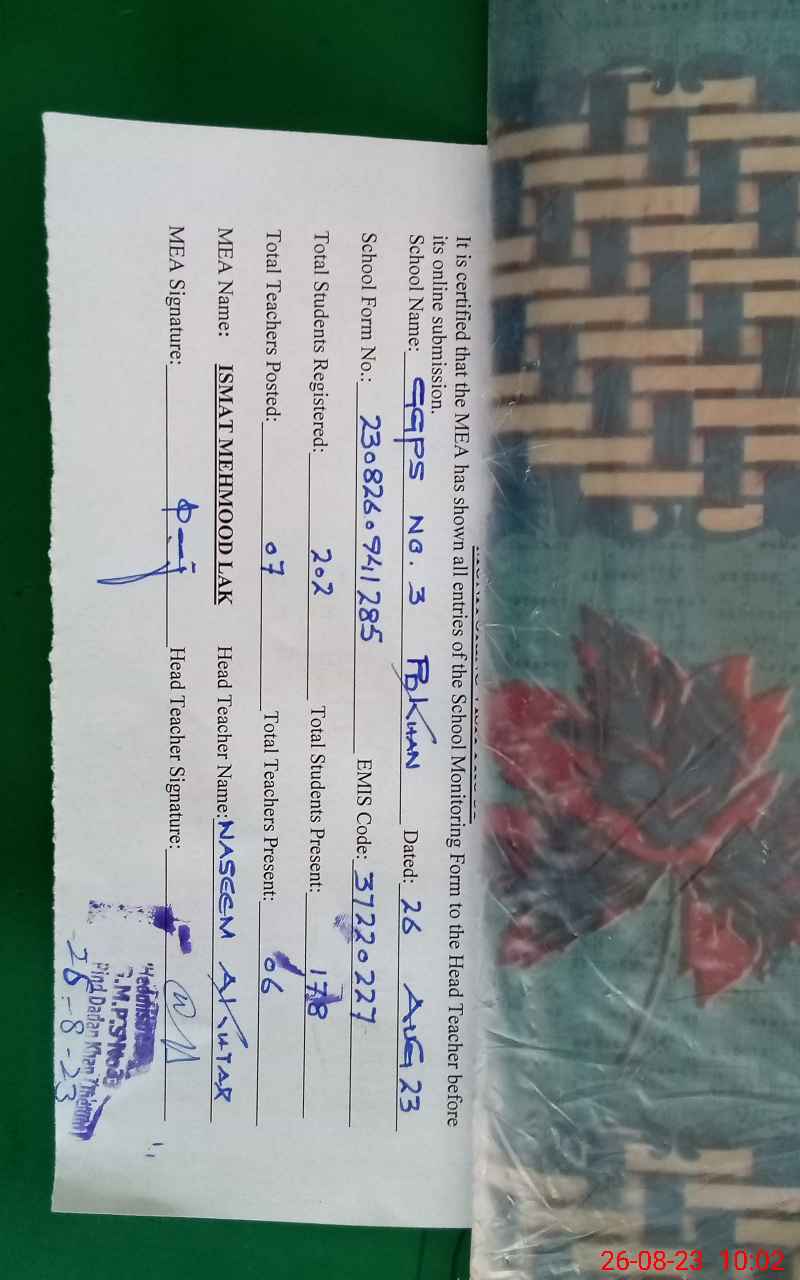 It is certified that the MEA has shown all entries of the School Monitoring Form to the Head Teacher before
its online submission.
School Name: GGPS No. 3 PDKHAN Dated: 26 AUG 23
School Form No.: 2308260941285 EMIS Code: 37220227
Total Students Registered: 202 Total Students Present: 178
Total Teachers Posted: 07 Total Teachers Present: 06
MEA Name: ISMAT MEHMOOD LAK Head Teacher Name: NASEEM AKHTAR
MEA Signature: Head Teacher Signature:
Pind Dadan Khan
26-8-23
26-08-23 10:02